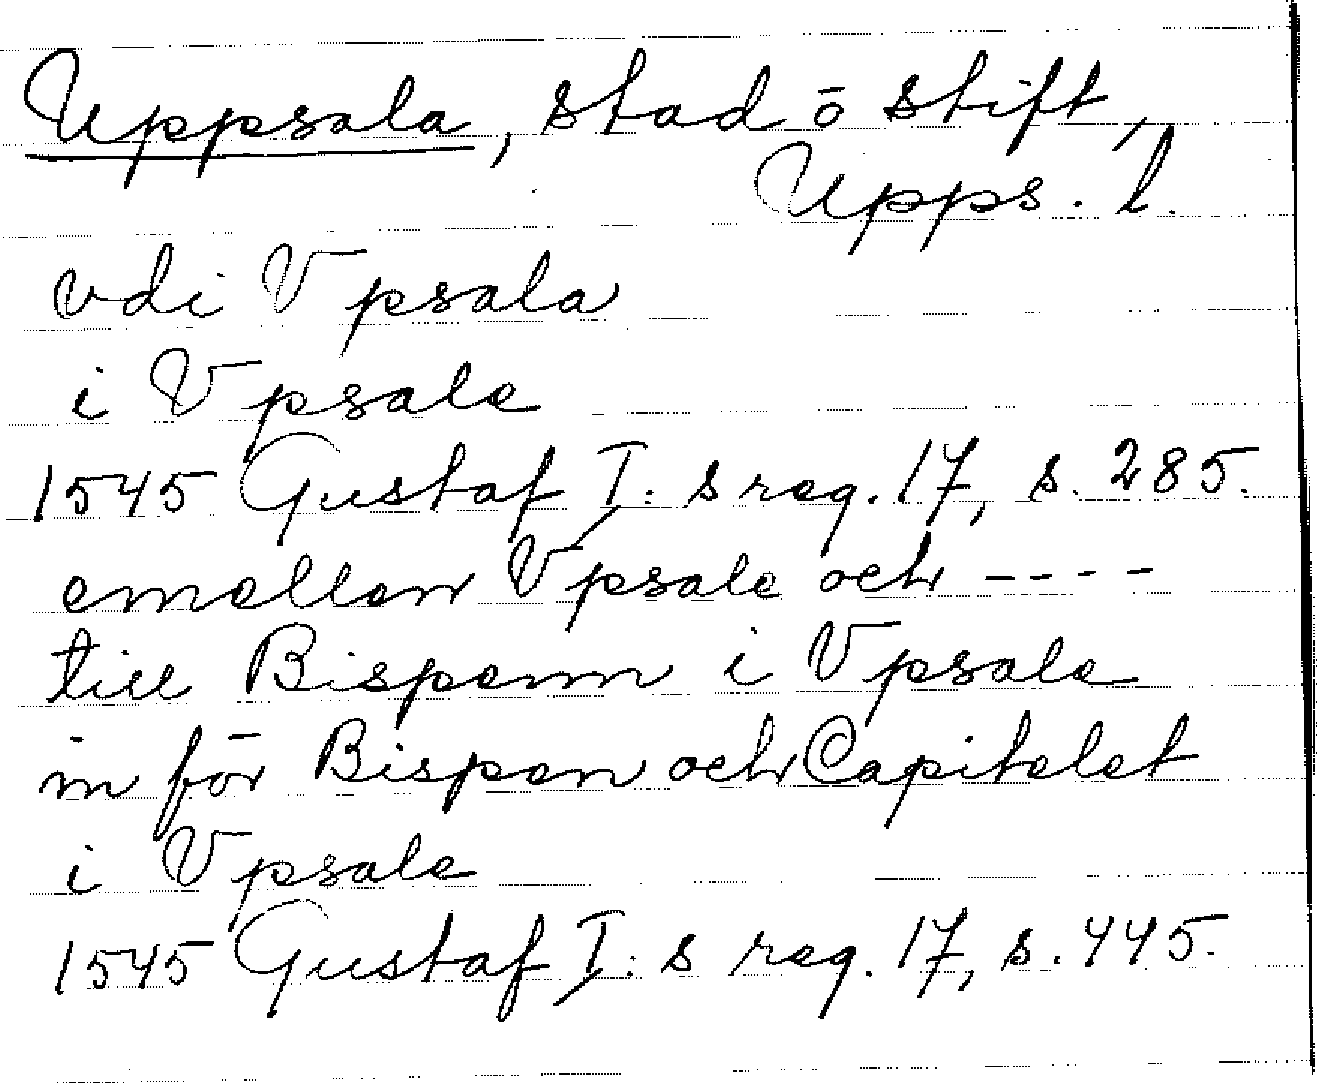 Uppsala, stad ō stift,
Upps. l.
vdi Vpsala
i Vpsale
1545 Gustaf I: s reg. 17, s. 285.
emellan Vpsale och ----
till Bispenn i Vpsale
in för Bispen och Capitelet
i Vpsale
1545 Gustaf I: s reg. 17, s. 445.